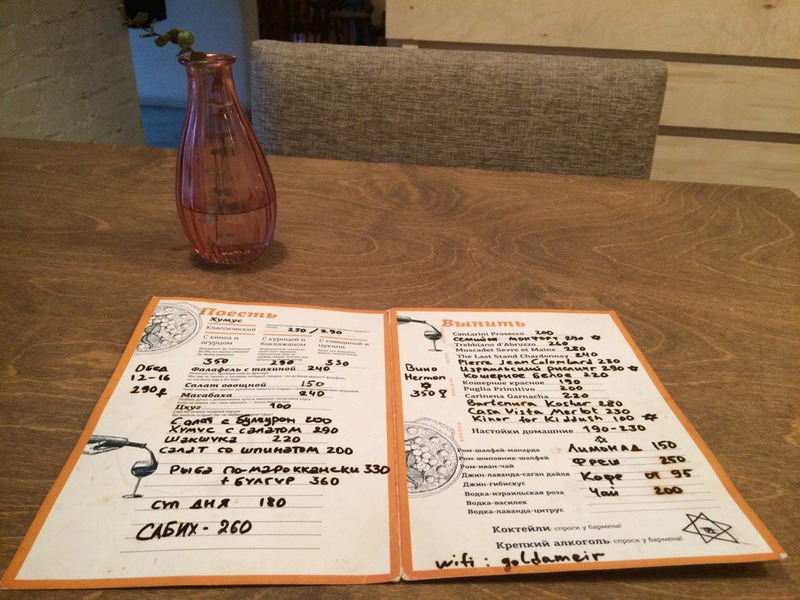 Поесть
Хумус
Классический 250/290
С киноа и огурцом
С курицей и баклажаном
С говядиной и цукини
350 290 330
Обед
12-16
290р
Фалафель с тахиной 240
Салат овощной 150
Масабаха 240
Цхуг 100
Салат с булгуром 200
Хумус с салатом 290
Шакшука 220
Салат со шпинатом 200
Рыба по-мароккански 330
+ булгур 360
Суп дня 180
САБИХ - 260
Выпить
Contarini Prosecco 200
Семийон Монфорт 290
Trebbiano d'Abruzzo 260
Muscadet Sevre et Maine 280
The Last Stand Chardonnay 240
Pierre Jean Colombard 230
Израильский рислинг 290
Кошерное белое 220
Кошерное красное 190
Puglia Primitivo 200
Carinena Garnacha 220
Bartenura Kosher 280
Casa Vista Merlot 230
Kinor for Kiddush 100
Вино
Hermon
350
Настойки домашние 190-230
Ром-шалфей-манарда
Ром-шиповник-шалфей
Ром-иван-чай
Джин-лаванда-саган дайля
Джин-гибискус
Водка-израильская роза
Водка-василек
Водка-лаванда-цитрус
Лимонад 150
Фреш 250
Кофе от 95
Чай 200
Коктейли спроси у бармена!
Крепкий алкоголь спроси у бармена!
wifi: goldameir